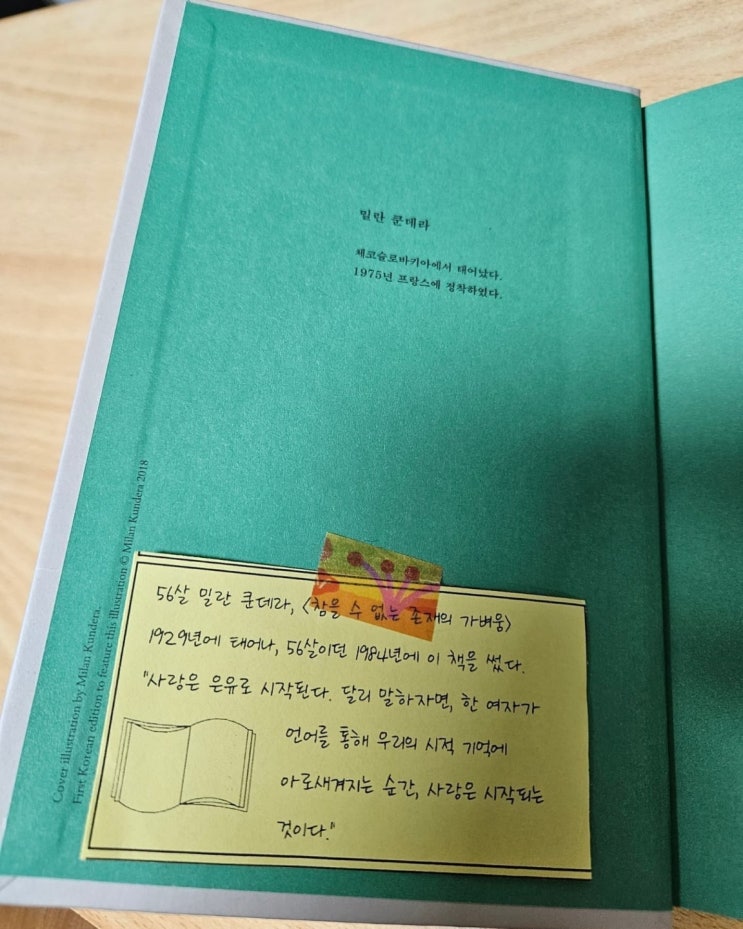 밀란 쿤데라
체코슬로바키아에서 태어났다.
1975년 프랑스에 정착하였다.
Cover illustration by Milan Kundera.
First Korean edition to feature this illustration © Milan Kundera 2018
56살 밀란 쿤데라, <참을 수 없는 존재의 가벼움>
1929년에 태어나, 56살이던 1984년에 이 책을 썼다.
"사랑은 은유로 시작된다. 달리 말하자면, 한 여자가
언어를 통해 우리의 시적 기억에
아로새겨지는 순간, 사랑은 시작되는
것이다."